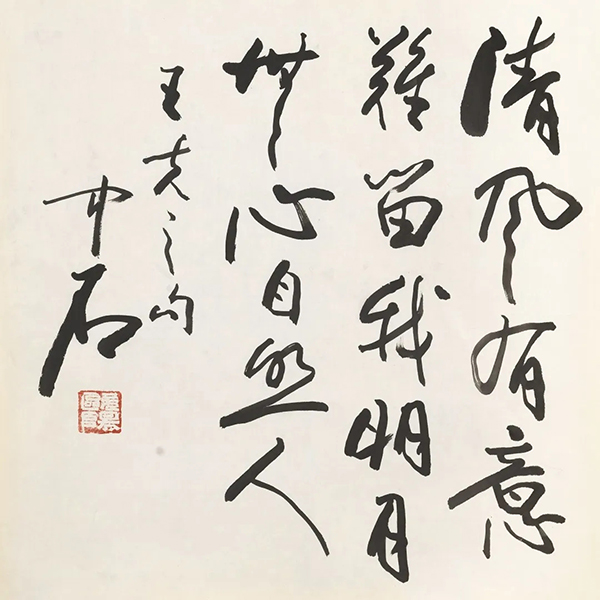 清风有意
難留我明月
無心自照人
王夫之句
中石